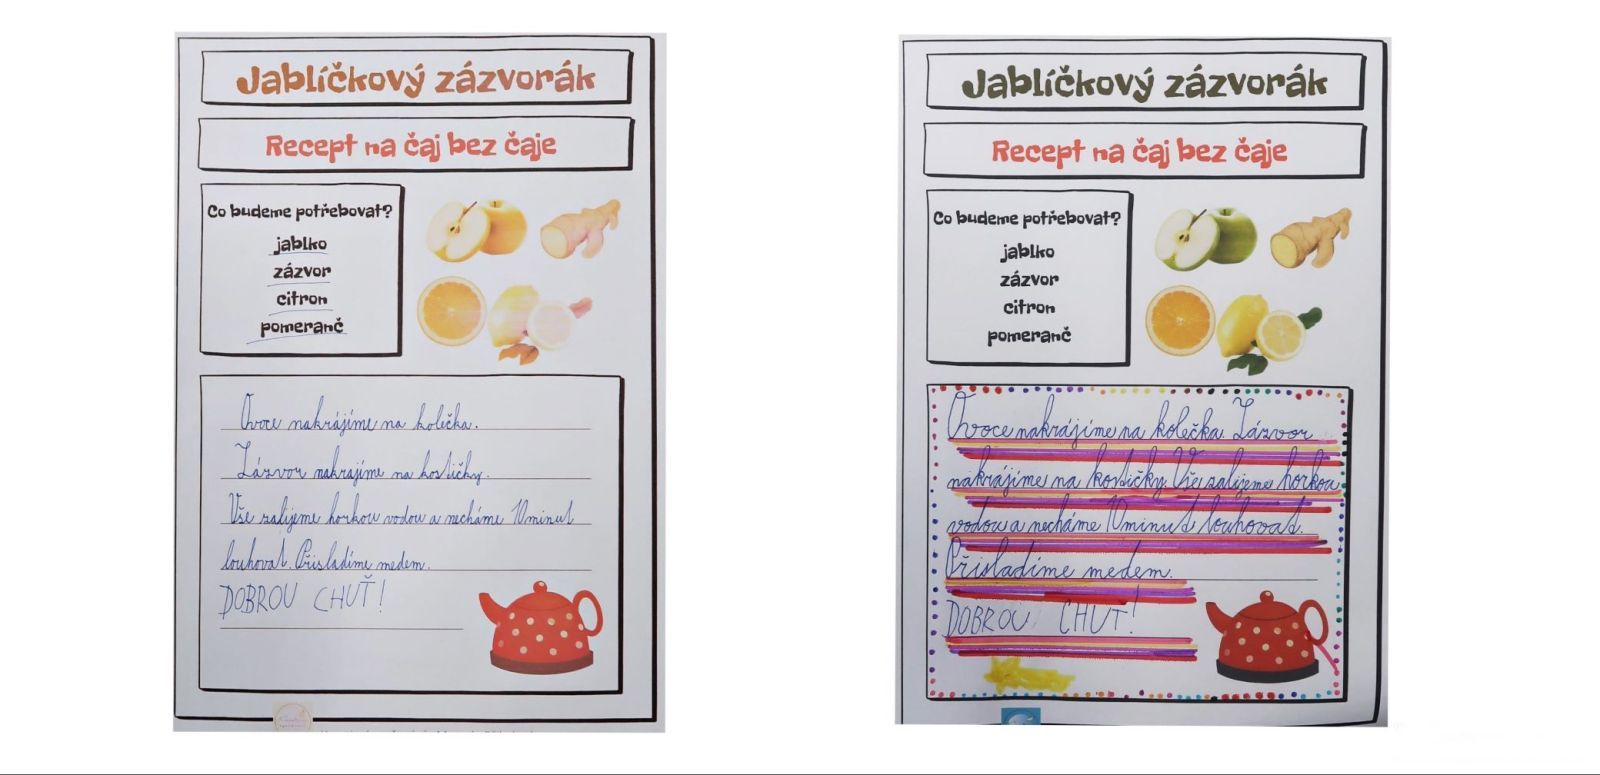 Jablíčkový zázvorák
Recept na čaj bez čaje
Co budeme potřebovat?
jablko
zázvor
citron
pomeranč
Ovoce nakrájíme na kolečka.
Zázvor nakrajíme na kostičky.
Vše zalijeme horkou vodou a necháme 10 minut
louhovat. Přisladíme medem.
DOBROU CHUŤ!
Jablíčkový zázvorák
Recept na čaj bez čaje
Co budeme potřebovat?
jablko
zázvor
citron
pomeranč
Ovoce nakrájíme na kolečka. Zázvor
nakrájíme na kostičky. Vše zalijeme horkou
vodou a necháme 10 minut louhovat.
Přisladíme medem.
DOBROU CHUŤ!